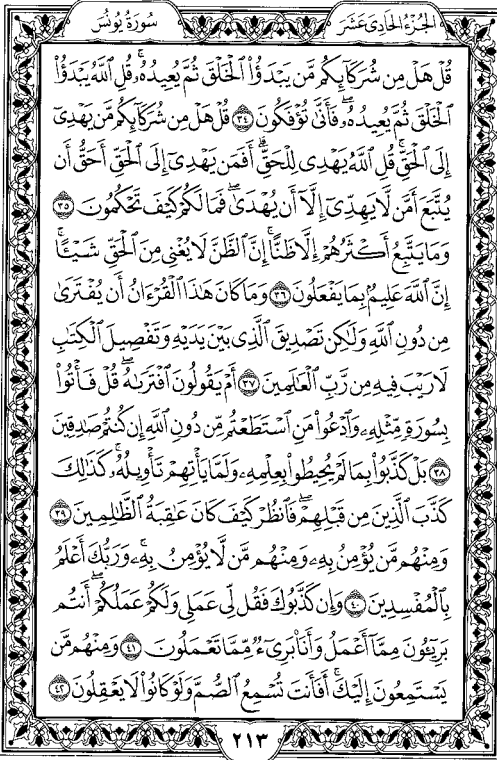 سُورَةُ يُونُسَ
الجُزْءُ الحَادِى عَشَرَ
قُلْ هَلْ مِن شُرَكَآئِكُم مَّن يَبْدَؤُا۟ ٱلْخَلْقَ ثُمَّ يُعِيدُهُۥ ۚ قُلِ ٱللَّهُ يَبْدَؤُا۟
ٱلْخَلْقَ ثُمَّ يُعِيدُهُۥ ۖ فَأَنَّىٰ تُؤْفَكُونَ ٣٤ قُلْ هَلْ مِن شُرَكَآئِكُم مَّن يَهْدِىٓ
إِلَى ٱلْحَقِّ ۚ قُلِ ٱللَّهُ يَهْدِى لِلْحَقِّ ۗ أَفَمَن يَهْدِىٓ إِلَى ٱلْحَقِّ أَحَقُّ أَن
يُتَّبَعَ أَمَّن لَّا يَهِدِّىٓ إِلَّآ أَن يُهْدَىٰ ۖ فَمَا لَكُمْ كَيْفَ تَحْكُمُونَ ٣٥
وَمَا يَتَّبِعُ أَكْثَرُهُمْ إِلَّا ظَنًّا ۚ إِنَّ ٱلظَّنَّ لَا يُغْنِى مِنَ ٱلْحَقِّ شَيْـًٔا ۚ
إِنَّ ٱللَّهَ عَلِيمٌۢ بِمَا يَفْعَلُونَ ٣٦ وَمَا كَانَ هَـٰذَا ٱلْقُرْءَانُ أَن يُفْتَرَىٰ
مِن دُونِ ٱللَّهِ وَلَـٰكِن تَصْدِيقَ ٱلَّذِى بَيْنَ يَدَيْهِ وَتَفْصِيلَ ٱلْكِتَـٰبِ
لَا رَيْبَ فِيهِ مِن رَّبِّ ٱلْعَـٰلَمِينَ ٣٧ أَمْ يَقُولُونَ ٱفْتَرَىٰهُ ۖ قُلْ فَأْتُوا۟
بِسُورَةٍ مِّثْلِهِۦ وَٱدْعُوا۟ مَنِ ٱسْتَطَعْتُم مِّن دُونِ ٱللَّهِ إِن كُنتُمْ صَـٰدِقِينَ
٣٨ بَلْ كَذَّبُوا۟ بِمَا لَمْ يُحِيطُوا۟ بِعِلْمِهِۦ وَلَمَّا يَأْتِهِمْ تَأْوِيلُهُۥ ۚ كَذَٰلِكَ
كَذَّبَ ٱلَّذِينَ مِن قَبْلِهِمْ ۖ فَٱنظُرْ كَيْفَ كَانَ عَـٰقِبَةُ ٱلظَّـٰلِمِينَ ٣٩
وَمِنْهُم مَّن يُؤْمِنُ بِهِۦ وَمِنْهُم مَّن لَّا يُؤْمِنُ بِهِۦ ۚ وَرَبُّكَ أَعْلَمُ
بِٱلْمُفْسِدِينَ ٤٠ وَإِن كَذَّبُوكَ فَقُل لِّى عَمَلِى وَلَكُمْ عَمَلُكُمْ ۖ أَنتُم
بَرِيٓـُٔونَ مِمَّآ أَعْمَلُ وَأَنَا۠ بَرِىٓءٌ مِّمَّا تَعْمَلُونَ ٤١ وَمِنْهُم مَّن
يَسْتَمِعُونَ إِلَيْكَ ۚ أَفَأَنتَ تُسْمِعُ ٱلصُّمَّ وَلَوْ كَانُوا۟ لَا يَعْقِلُونَ ٤٢
٢١٣